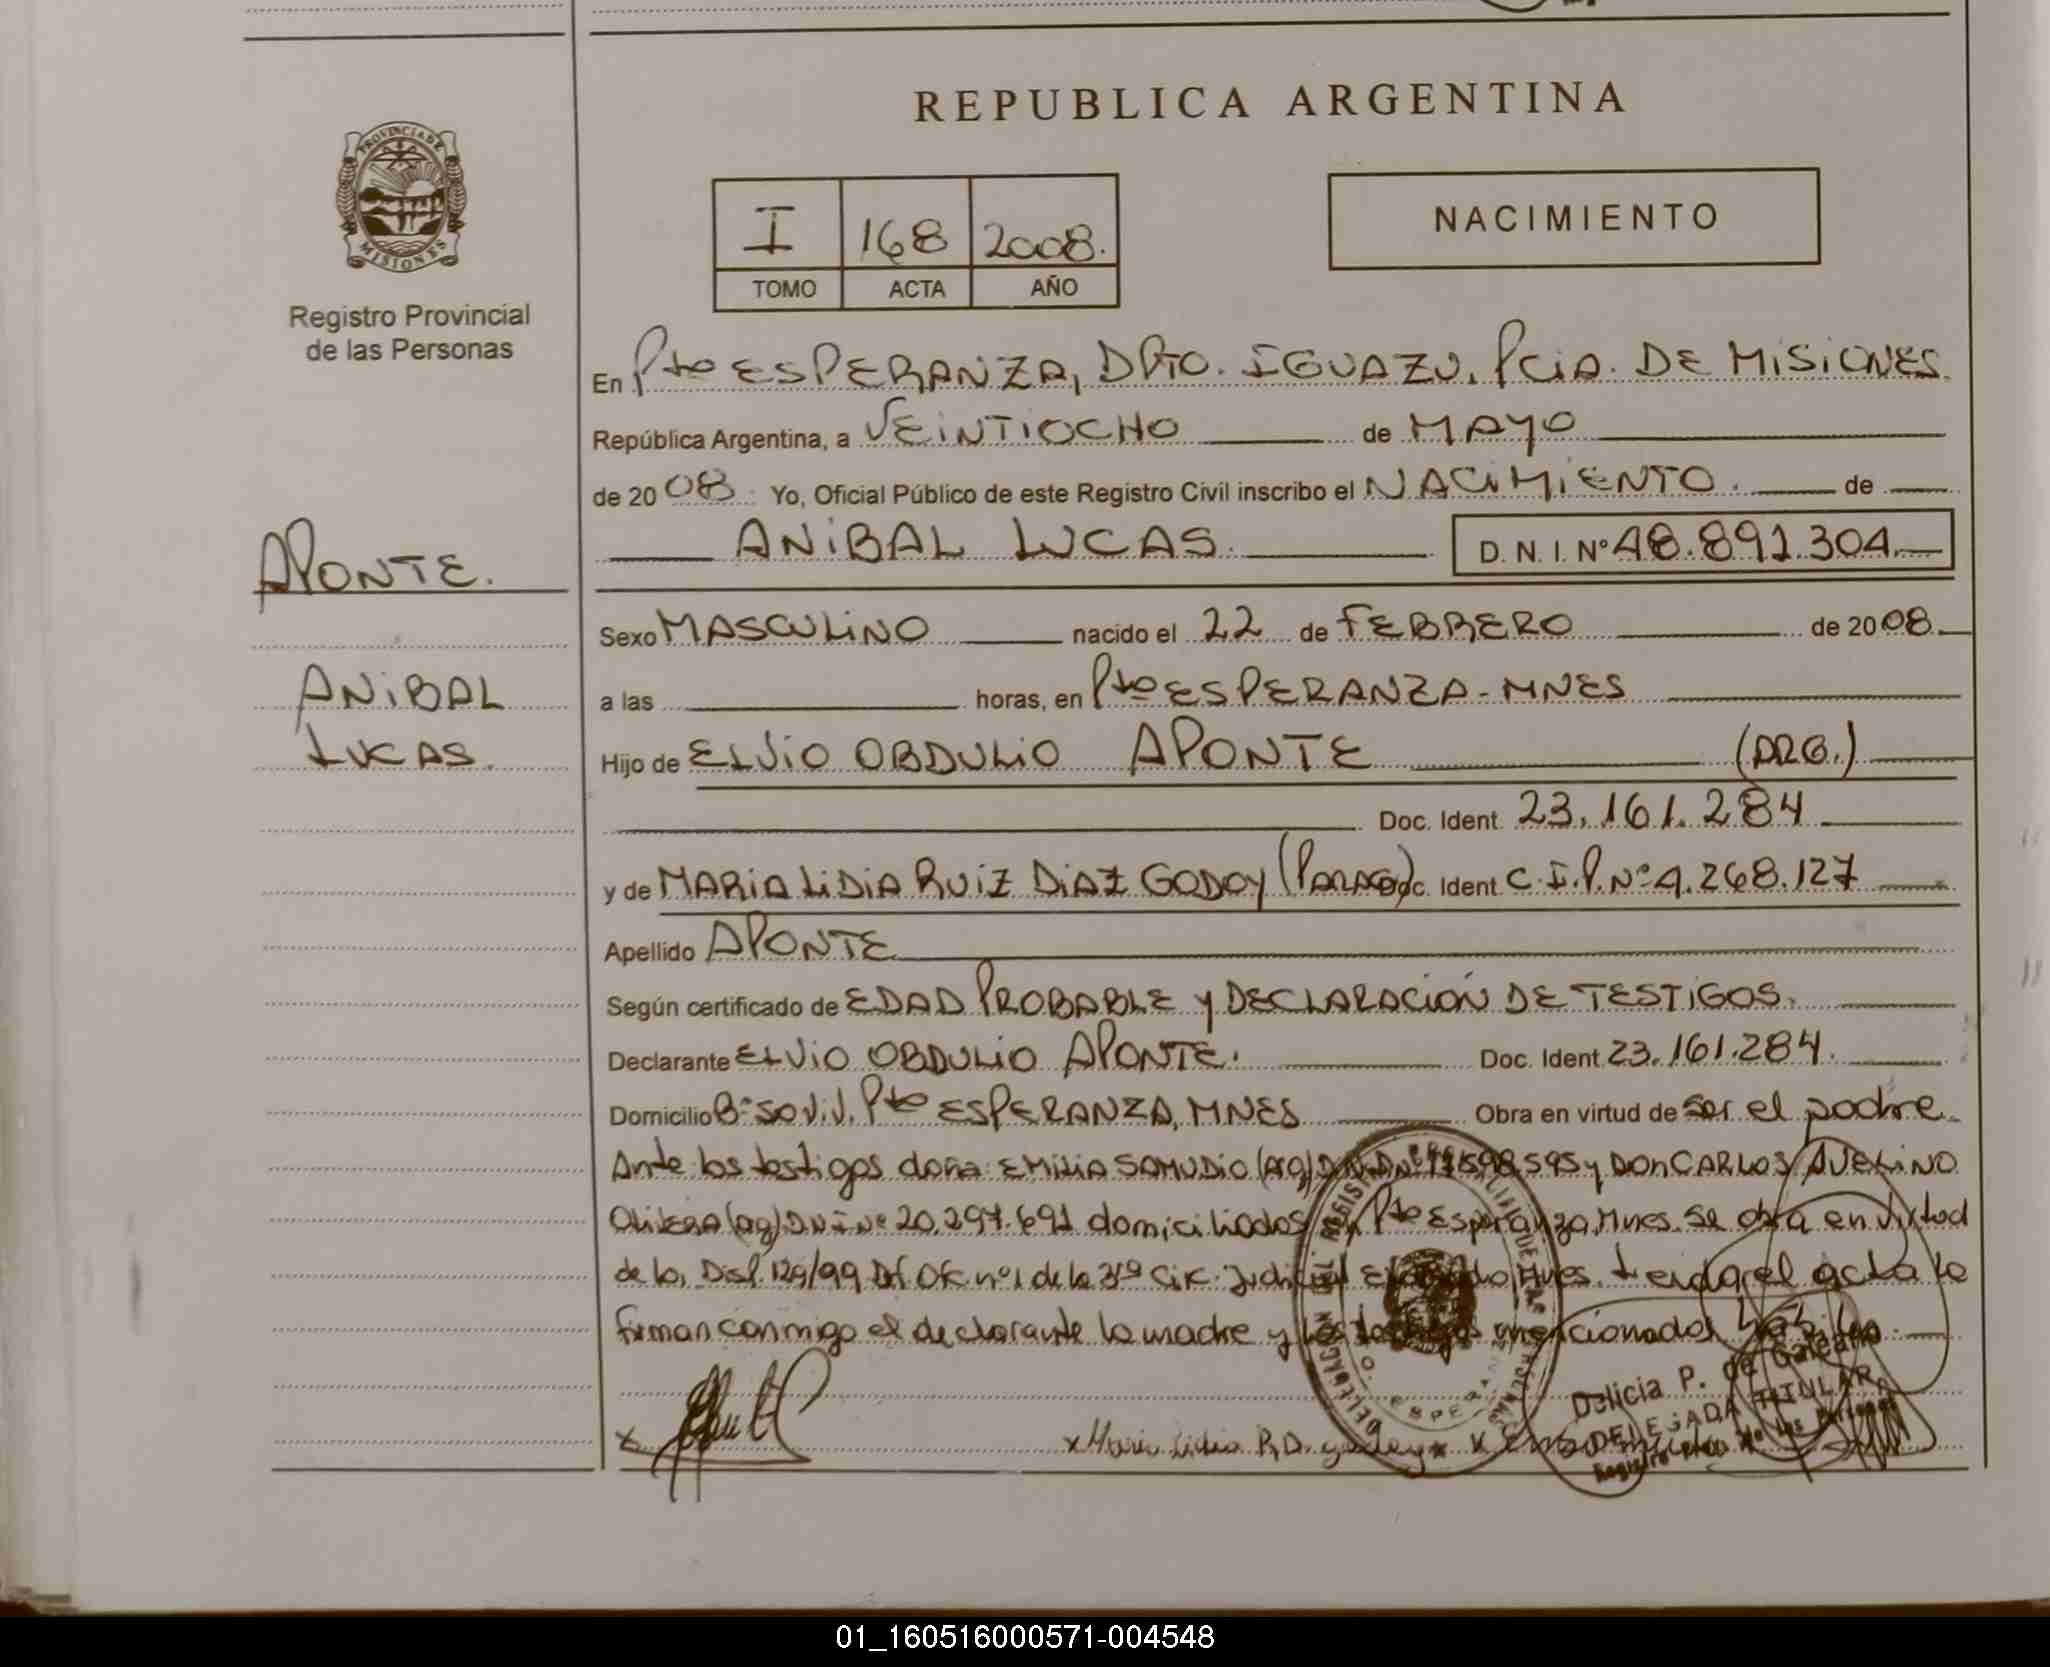 REPUBLICA ARGENTINA
PROVINCIA DE
MISIONES
Registro Provincial
de las Personas
I 168 2008.
TOMO ACTA AÑO
NACIMIENTO
En Pto ESPERANZA, DPTO. IGUAZU. PCIA. DE MISIONES.
República Argentina, a VEINTIOCHO de MAYO
de 2008. Yo, Oficial Público de este Registro Civil inscribo el NACIMIENTO. de
ANIBAL LUCAS. D. N. I. Nº 48.891.304.
APONTE.
ANIBAL
LUCAS.
Sexo MASCULINO nacido el 22 de FEBRERO de 2008.
a las horas, en Pto ESPERANZA - MNES
Hijo de ELVIO OBDULIO APONTE (ARG.)
Doc. Ident. 23.161.284
y de MARIA LIDIA RUIZ DIAZ GODOY (PARAG) Doc. Ident. C.I.P. Nº 4.268.127
Apellido APONTE
Según certificado de EDAD PROBABLE y DECLARACIÓN DE TESTIGOS.
Declarante ELVIO OBDULIO APONTE. Doc. Ident. 23.161.284.
Domicilio Bº 50 viv. Pto ESPERANZA, MNES Obra en virtud de ser el padre
Ante los testigos doña EMILIA SAMUDIO (arg) y DON CARLOS AVELINO
Olivera (arg) DNI Nº 20.297.691 domiciliados en Pto Esperanza, Mnes. Se obra en virtud
de la Disp. 129/99 Def. Of. nº 1 de la 3ra Circ. Judicial Eldorado Mnes. Leida el acta la
firman conmigo el declarante la madre y los testigos mencionados
Delicia P. de Galeano
DELEGADA TITULAR
Registro Prov. de las Personas
x x Maria Lidia R.D. godoy x
01_160516000571-004548